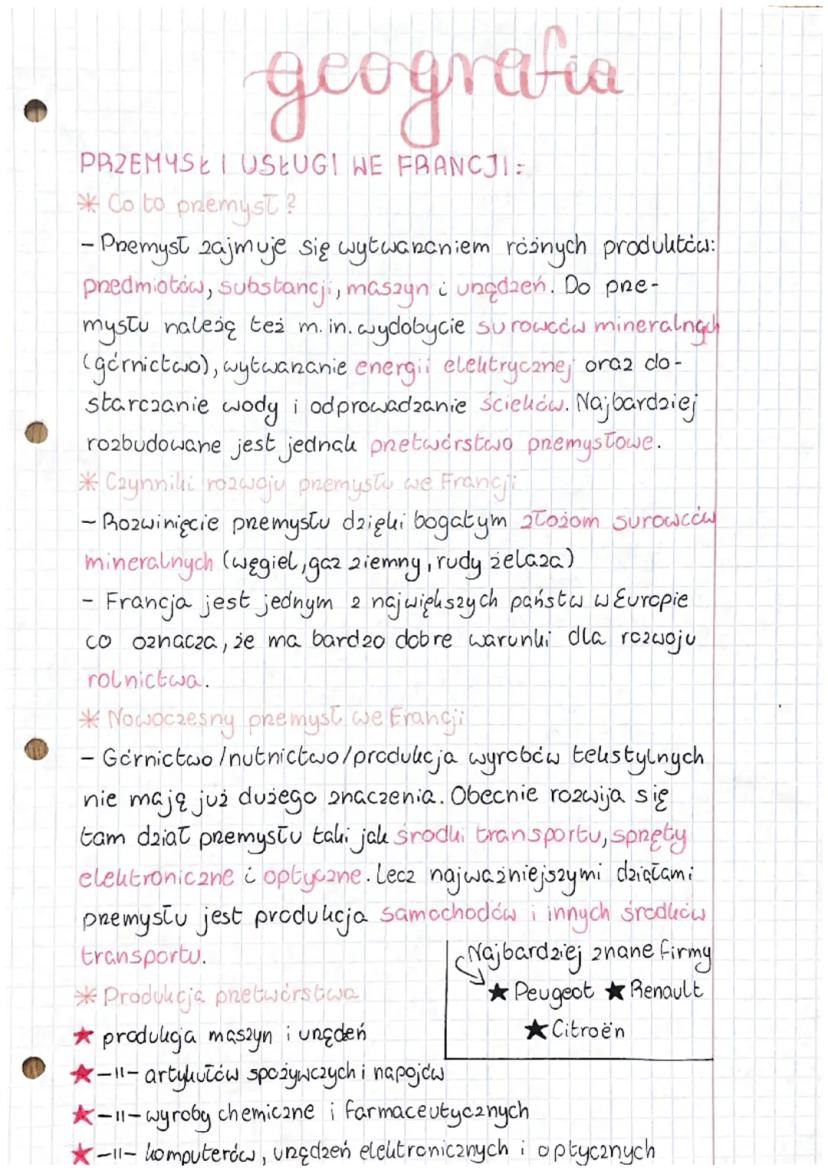 geografia
PRZEMYSŁ I USŁUGI WE FRANCJI:
* Co to przemysł?
- Przemysł zajmuje się wytwarzaniem różnych produktów:
przedmiotów, substancji, maszyn i urządzeń. Do prze-
mysłu należą też m.in. wydobycie surowców mineralnych
(górnictwo), wytwarzanie energii elektrycznej oraz do-
starczanie wody i odprowadzanie ścieków. Najbardziej
rozbudowane jest jednak przetwórstwo przemysłowe.
* Czynniki rozwoju przemysłu we Francji
- Rozwinięcie przemysłu dzięki bogatym złożom surowców
mineralnych (węgiel, gaz ziemny, rudy żelaza)
- Francja jest jednym z największych państw w Europie
co oznacza, że ma bardzo dobre warunki dla rozwoju
rolnictwa.
* Nowoczesny przemysł we Francji
- Górnictwo/hutnictwo/produkcja wyrobów tekstylnych
nie mają już dużego znaczenia. Obecnie rozwija się
tam dział przemysłu taki jak środki transportu, sprzęty
elektroniczne i optyczne. Lecz najważniejszymi działami
przemysłu jest produkcja samochodów i innych środków
transportu.
Najbardziej znane firmy
★ Peugeot ★ Renault
★ Citroën
* Produkcja przetwórstwa
★ produkcja maszyn i urządeń
★ -11- artykułów spożywczych i napojów
★ -11- wyroby chemiczne i farmaceutycznych
★ -11- komputerów, urządzeń elektronicznych i optycznych